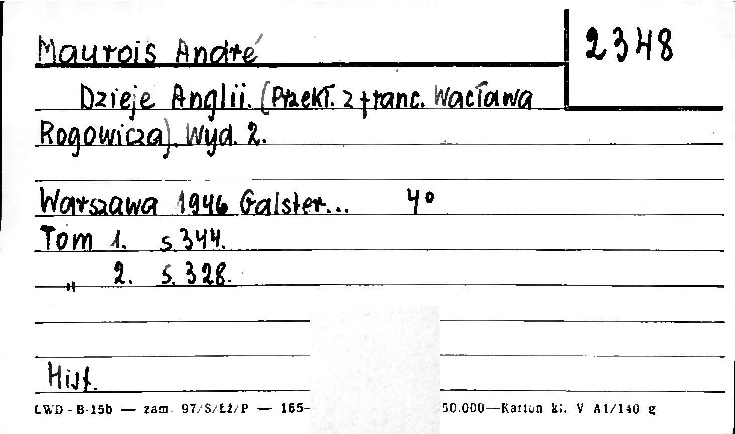 Maurois André
2348
Dzieje Anglii. (Przekł. z franc. Wacława
Rogowicza). Wyd. 2.
Warszawa 1946 Galster... 4°
Tom 1. s. 344.
„ 2. s. 328.
Hist.
LWD - B-15b — zam. 97/S/Łź/P — 165- 50.000—Karton kl. V A1/140 g